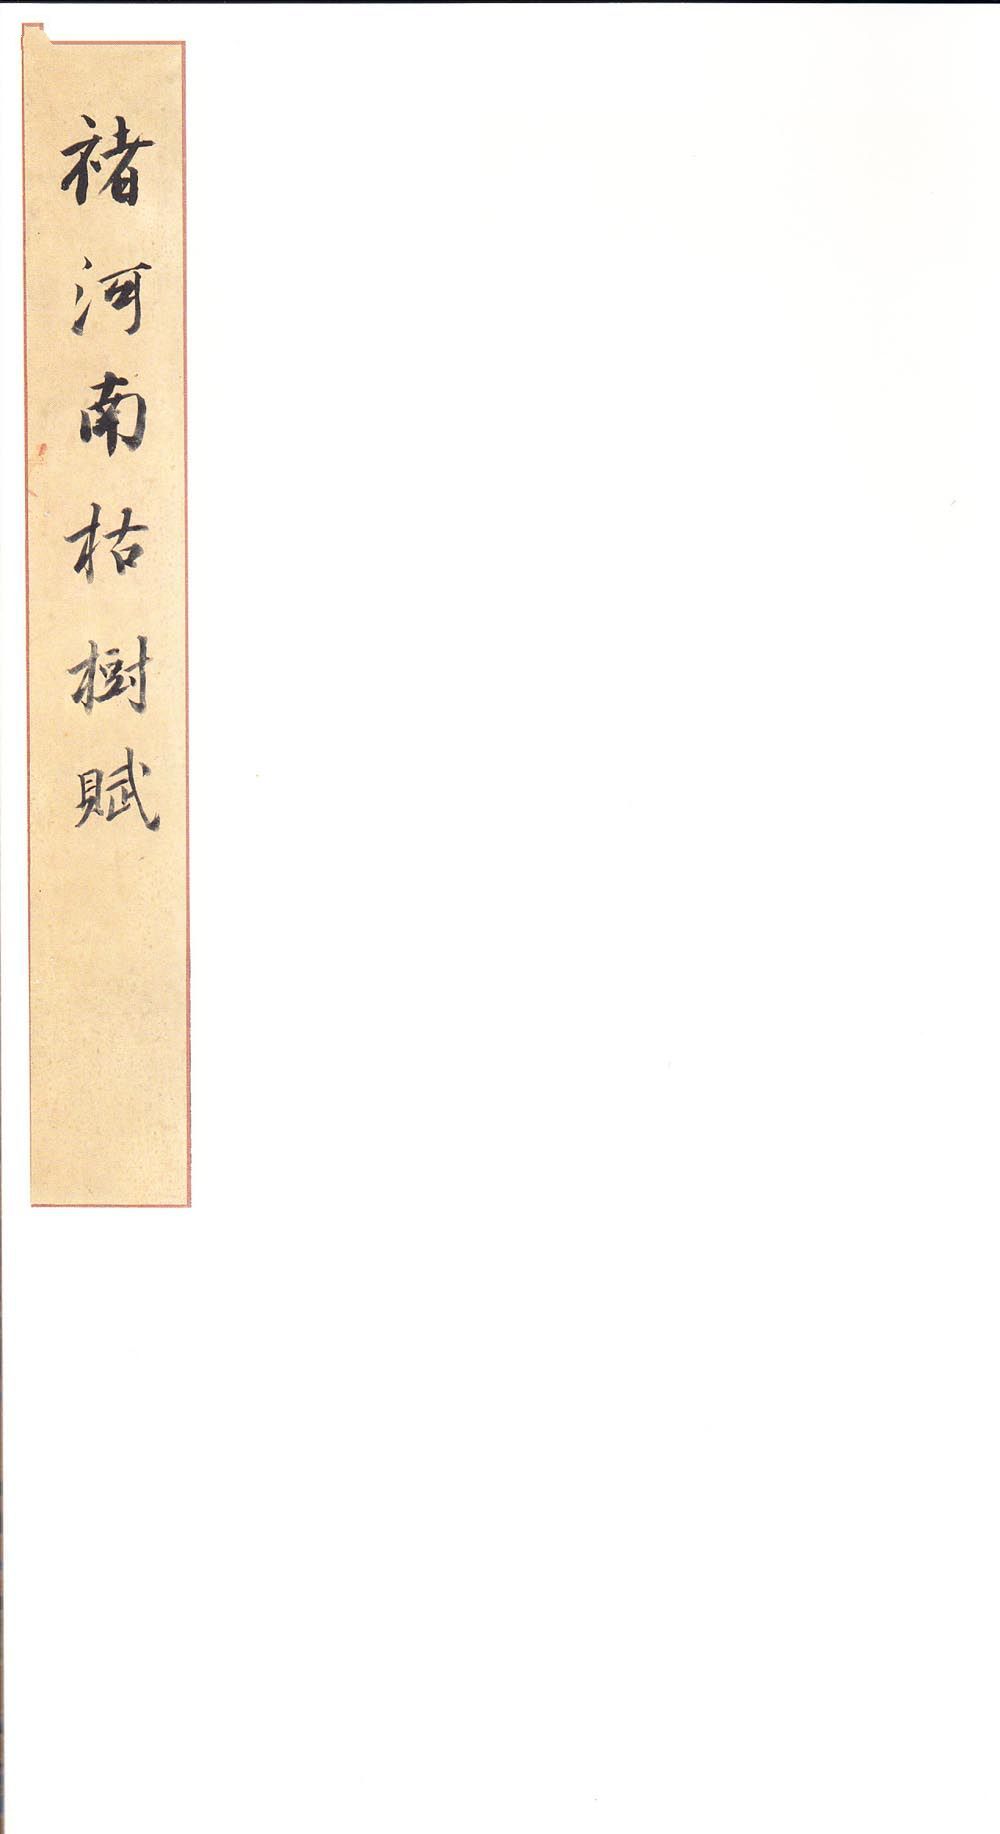 褚河南枯樹賦